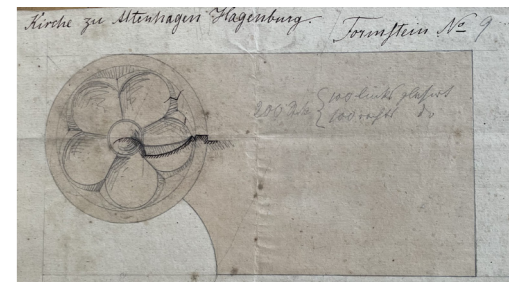 Kirche zu Altenhagen Hagenburg.
Formstein No 9
200 Stck { 100 links glasirt
100 rechts do